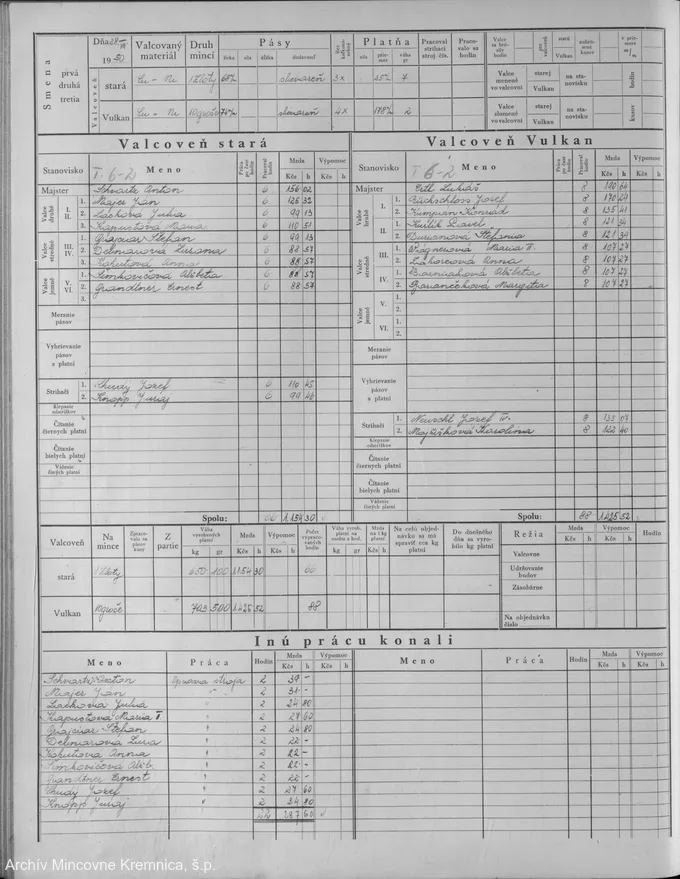 Smena
prvá
druhá
tretia
Valcoveň
Dňa 28/III 1950
Valcovaný materiál
Druh mincí
Pásy
šírka sila dĺžka dodavateľ
Platňa
sila priemer váha g
Pracoval strihací stroj čís.
Pracovalo sa hodín
stará
Cu - Ni
1 Zloty
slovareň
3x
25%
7
Vulkan
Cu - Ni
10 groše
slovareň
4x
2
stará
Vulkan
Valce menené vo valcovni
starej
Vulkan
na stanovisku
hodín
Valce zlomené vo valcovni
starej
Vulkan
na stanovisku
kusov
Valcoveň stará
Stanovisko T. 6-2 Meno
Mzda
Kčs h
Výpomoc
Kčs h
Majster Schvartz Anton 6 156 02
Valce hrubé I. II. 1. Majer Ján 6 126 32
2. Lacková Julia 6 99 13
3. Kapustová Maria 6 110 51
Valce stredné III. IV. 1. Grajciar Štefan 6 99 13
2. Delmárová Zuzana 6 88 57
3. Kohútová Anna 6 88 57
Valce jemné V. VI. 1. Simkovičová Alžbeta 6 88 57
2. Grandtner Ernest 6 88 57
3.
Meranie pásov
Vyhrievanie pásov a platní
Strihači 1. Chudý Jozef 6 110 45
2. Knopp Juraj 6 99 46
Klepanie odstrižkov
Čítanie čiernych platní
Čítanie bielych platní
Váženie čistých platní
Spolu: 66 1.154 30
Valcoveň Vulkan
Stanovisko T 6-2 Meno
Mzda
Kčs h
Výpomoc
Kčs h
Majster Edl Lukáš 8 190 64
Valce hrubé I. 1. Büchschloss Jozef 8 170 29
2. Kimpian Konrád 8 135 41
II. 1. Kulik Pavel 8 121 34
2. Durianová Štefania 8 121 34
Valce stredné III. 1. Wagnerová Maria II. 8 107 27
2. Záhorcová Anna 8 107 27
IV. 1. Borniaková Alžbeta 8 107 27
2. Goliančeková Margita 8 107 27
Valce jemné V. 1.
2.
VI. 1.
2.
Meranie pásov
Vyhrievanie pásov a platní
Strihači 1. Neuschl Jozef II. 8 135 07
2. Majtišková Karolina 8 122 40
Klepanie odstrižkov
Čítanie čiernych platní
Čítanie bielych platní
Váženie čistých platní
Spolu: 88 1.425 52
Valcoveň
Na mince
Z partie
Váha vyrobených platní
kg gr
Mzda
Kčs h
Výpomoc
Kčs h
Počet vypracovaných hodín
Váha vyrob. platní na osobu a hod.
kg gr
Mzda na 1 kg platní
Kčs h
Na celú objednávku sa má spraviť cca kg platní
Do dnešného dňa sa vyrobilo kg platní
Režia
Mzda
Kčs h
Výpomoc
Kčs h
Hodín
stará 1 Zloty 650 100 1154 30 66
Vulkan 10 groše 793 500 1.425 52 88
Valcovne
Udržovanie budov
Zásobárne
Na objednávku číslo
Inú prácu konali
Meno Práca Hodín Mzda Kčs h Výpomoc Kčs h
Meno Práca Hodín Mzda Kčs h Výpomoc Kčs h
Schvartz Anton Oprava stroja 2 39 -
Majer Ján " 2 31 -
Lacková Julia " 2 24 80
Kapustová Maria I. " 2 27 60
Grajciar Štefan " 2 24 80
Delmárová Zuza " 2 22 -
Kohútová Anna " 2 22 -
Simkovičová Alžb. " 2 22 -
Grandtner Ernest " 2 22 -
Chudý Jozef " 2 27 60
Knopp Juraj " 2 24 80
22 287 60
Archív Mincovne Kremnica, š.p.